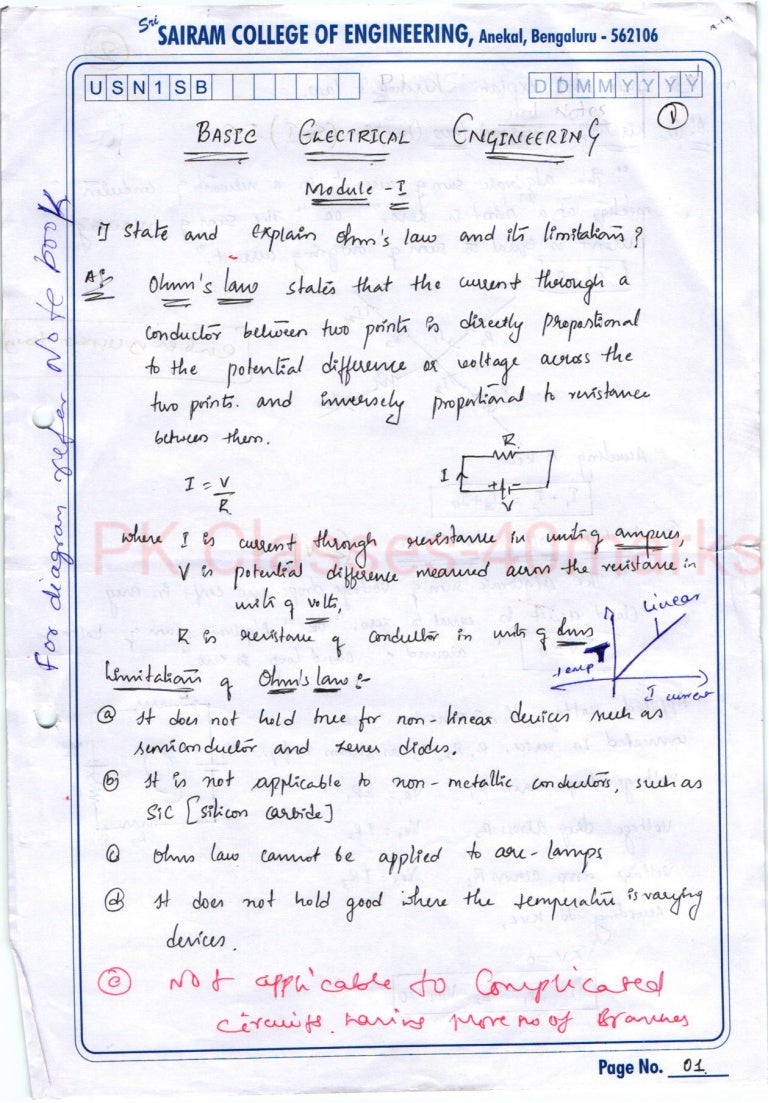 Sri SAIRAM COLLEGE OF ENGINEERING, Anekal, Bengaluru - 562106
USN1SB DDMMYYYY
1
BASIC ELECTRICAL ENGINEERING
Module - I
1] State and explain ohm's law and its limitations?
A:- Ohm's law states that the current through a
conductor between two points is directly propotional
to the potential difference or voltage across the
two points. and inversely propotional to resistance
between them.
I = V/R
R
I
+ -
V
where I is current through resistance in units of amperes,
V is potential difference measured across the resistance in
units of volts,
R is resistance of conductor in units of ohms
Linear
temp
I current
Limitations of Ohm's law :-
(a) It does not hold true for non-linear devices such as
semiconductor and zener diodes.
(b) It is not applicable to non-metallic conductors, such as
SiC [silicon carbide]
(c) Ohms law cannot be applied to arc-lamps
(d) It does not hold good where the temperature is varying
devices.
(e) Not applicable to Complicated
circuits having more no of Branches
For diagram refer Note book
PK Classes-40marks
Page No. 01